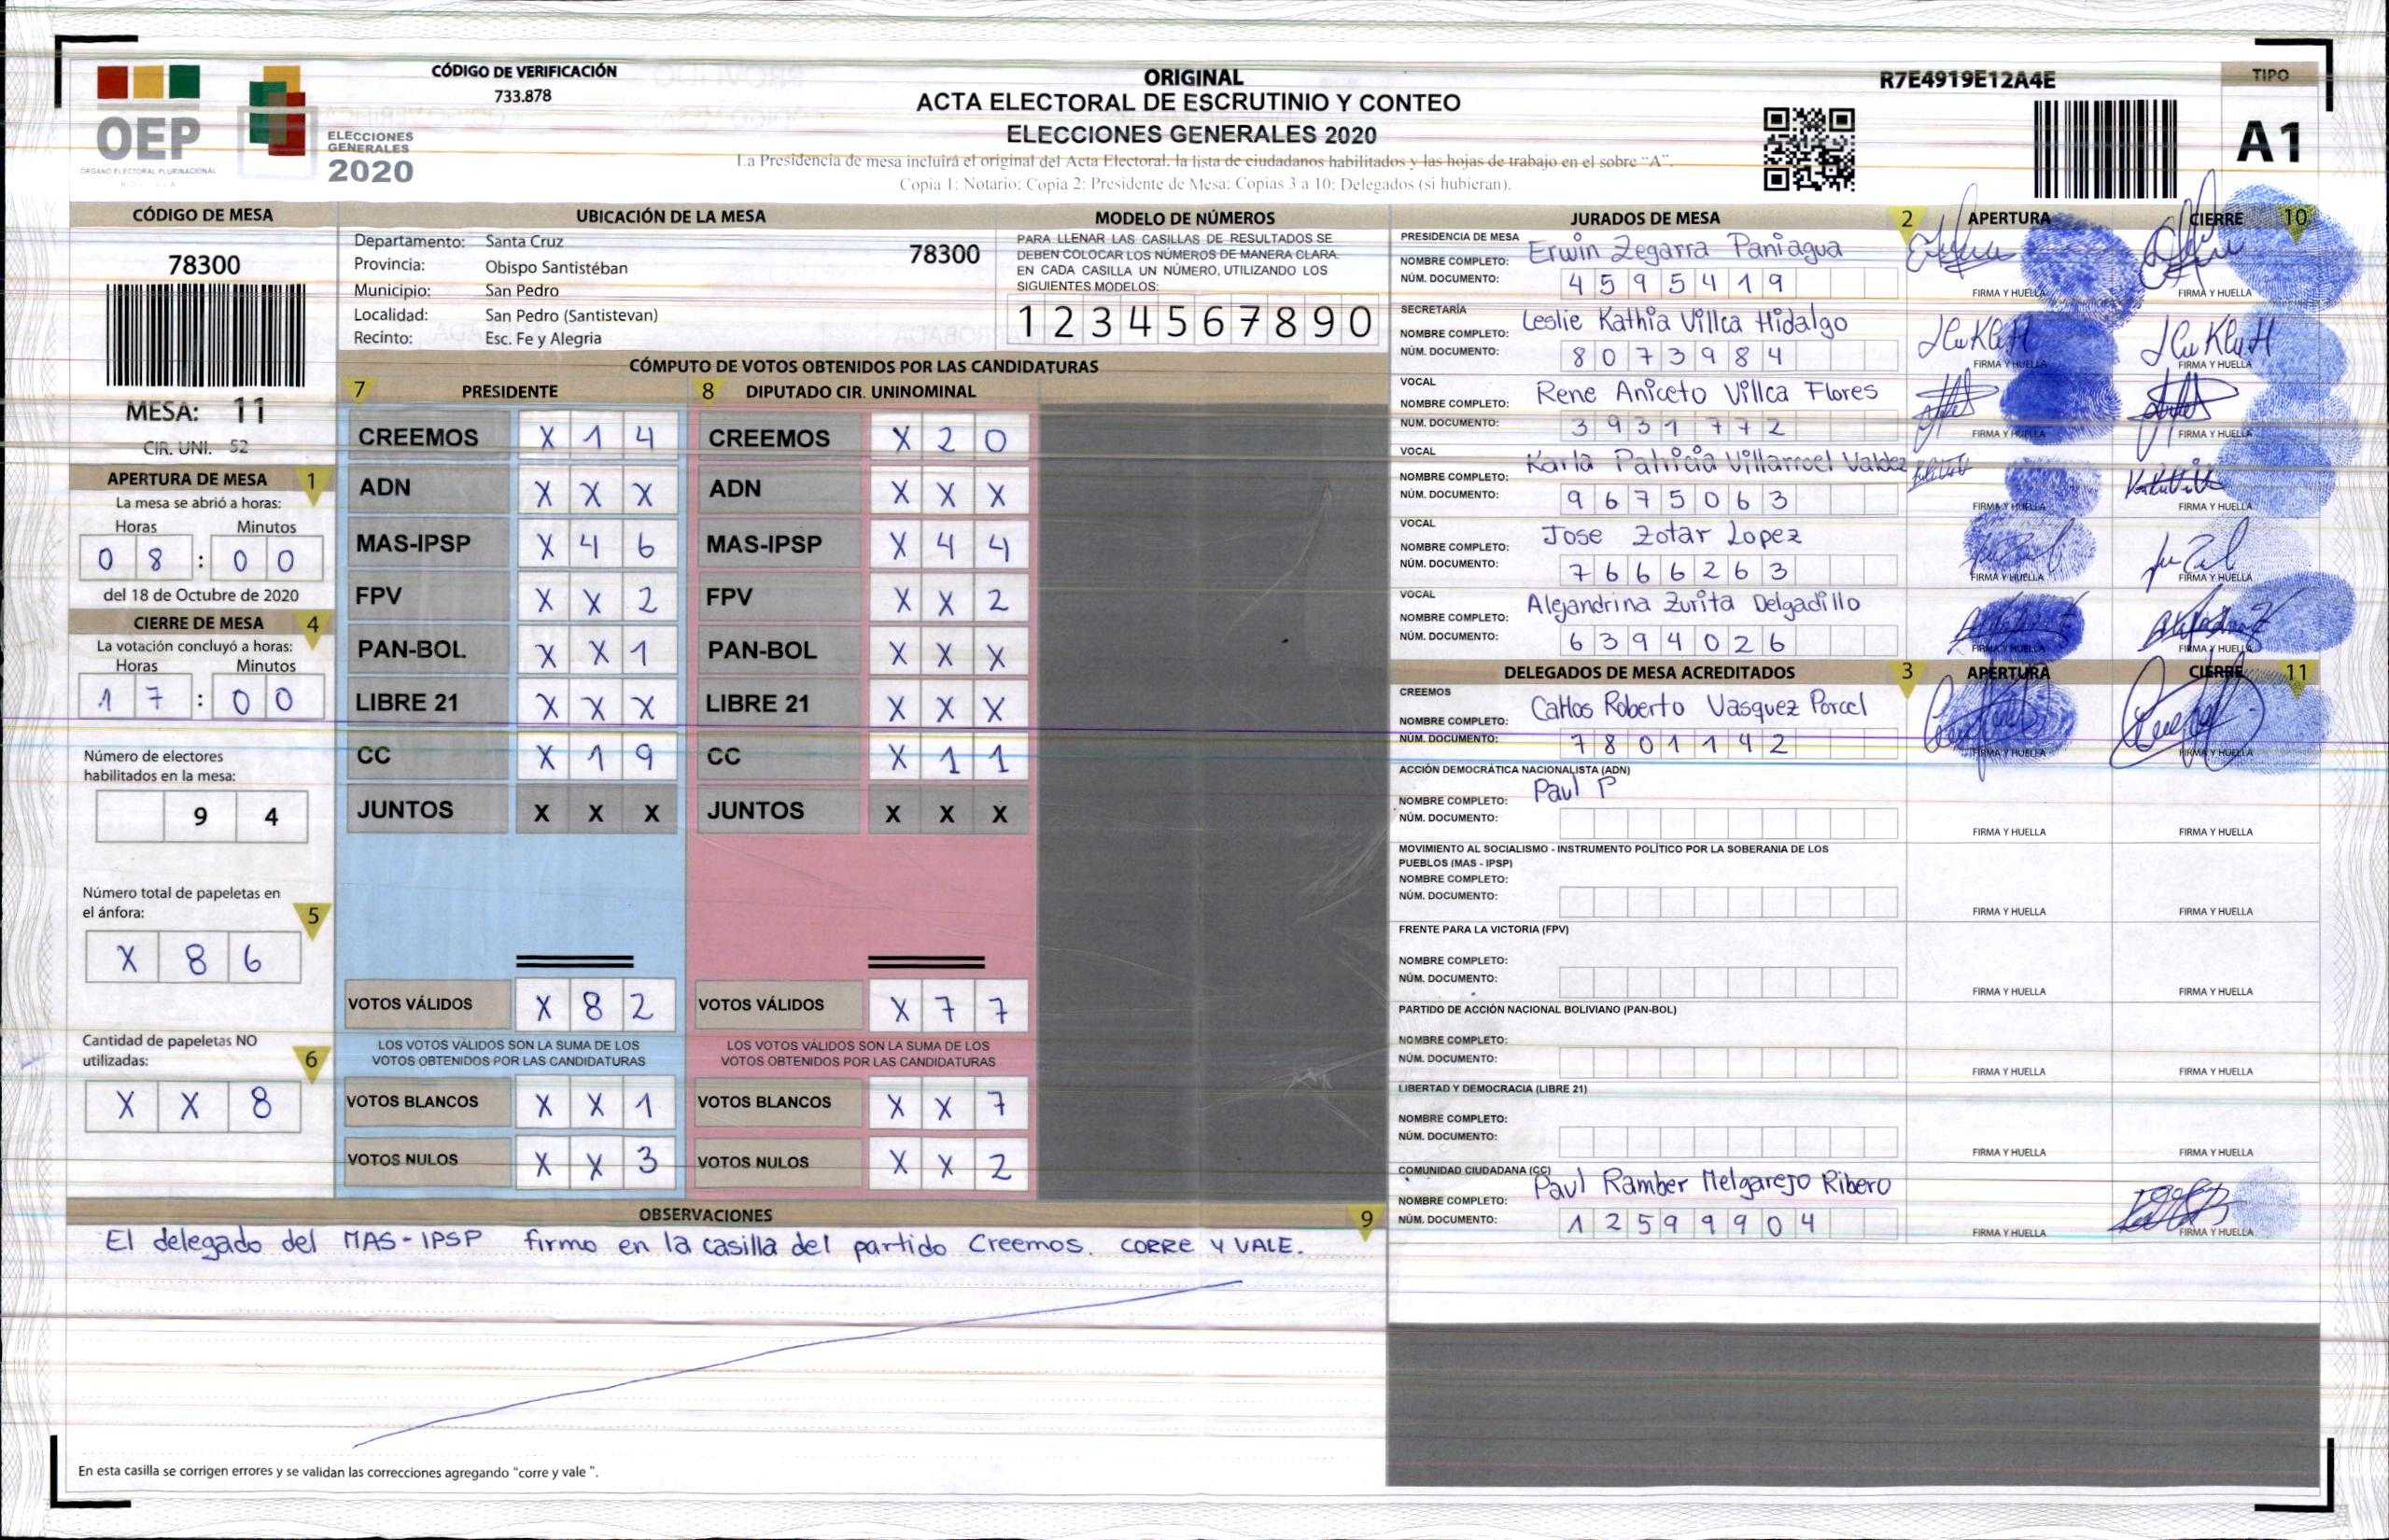 OEP
ÓRGANO ELECTORAL PLURINACIONAL
BOLIVIA
ELECCIONES
GENERALES
2020
CÓDIGO DE VERIFICACIÓN
733.878
ORIGINAL
ACTA ELECTORAL DE ESCRUTINIO Y CONTEO
ELECCIONES GENERALES 2020
La Presidencia de mesa incluirá el original del Acta Electoral, la lista de ciudadanos habilitados y las hojas de trabajo en el sobre "A".
Copia 1: Notario; Copia 2: Presidente de Mesa; Copias 3 a 10: Delegados (si hubieran).
R7E4919E12A4E
TIPO
A1
CÓDIGO DE MESA
78300
MESA: 11
CIR. UNI. 52
APERTURA DE MESA 1
La mesa se abrió a horas:
Horas Minutos
0 8 : 0 0
del 18 de Octubre de 2020
CIERRE DE MESA 4
La votación concluyó a horas:
Horas Minutos
1 7 : 0 0
Número de electores
habilitados en la mesa:
9 4
Número total de papeletas en
el ánfora: 5
X 8 6
Cantidad de papeletas NO
utilizadas: 6
X X 8
UBICACIÓN DE LA MESA
Departamento: Santa Cruz 78300
Provincia: Obispo Santistéban
Municipio: San Pedro
Localidad: San Pedro (Santistevan)
Recinto: Esc. Fe y Alegria
MODELO DE NÚMEROS
PARA LLENAR LAS CASILLAS DE RESULTADOS SE
DEBEN COLOCAR LOS NÚMEROS DE MANERA CLARA.
EN CADA CASILLA UN NÚMERO, UTILIZANDO LOS
SIGUIENTES MODELOS:
1 2 3 4 5 6 7 8 9 0
CÓMPUTO DE VOTOS OBTENIDOS POR LAS CANDIDATURAS
7 PRESIDENTE 8 DIPUTADO CIR. UNINOMINAL
CREEMOS X 1 4 CREEMOS X 2 0
ADN X X X ADN X X X
MAS-IPSP X 4 6 MAS-IPSP X 4 4
FPV X X 2 FPV X X 2
PAN-BOL X X 1 PAN-BOL X X X
LIBRE 21 X X X LIBRE 21 X X X
CC X 1 9 CC X 1 1
JUNTOS X X X JUNTOS X X X
VOTOS VÁLIDOS X 8 2 VOTOS VÁLIDOS X 7 7
LOS VOTOS VÁLIDOS SON LA SUMA DE LOS LOS VOTOS VÁLIDOS SON LA SUMA DE LOS
VOTOS OBTENIDOS POR LAS CANDIDATURAS VOTOS OBTENIDOS POR LAS CANDIDATURAS
VOTOS BLANCOS X X 1 VOTOS BLANCOS X X 7
VOTOS NULOS X X 3 VOTOS NULOS X X 2
OBSERVACIONES 9
El delegado del MAS-IPSP firmo en la casilla del partido Creemos. CORRE Y VALE.
En esta casilla se corrigen errores y se validan las correcciones agregando "corre y vale ".
JURADOS DE MESA 2 APERTURA CIERRE 10
PRESIDENCIA DE MESA
NOMBRE COMPLETO: Erwin Zegarra Paniagua
NÚM. DOCUMENTO: 4 5 9 5 4 1 9
FIRMA Y HUELLA FIRMA Y HUELLA
SECRETARÍA
NOMBRE COMPLETO: Leslie Kathia Villca Hidalgo
NÚM. DOCUMENTO: 8 0 7 3 9 8 4
FIRMA Y HUELLA FIRMA Y HUELLA
VOCAL
NOMBRE COMPLETO: Rene Aniceto Villca Flores
NÚM. DOCUMENTO: 3 9 3 1 7 7 2
FIRMA Y HUELLA FIRMA Y HUELLA
VOCAL
NOMBRE COMPLETO: Karla Patricia Villarroel Valdez
NÚM. DOCUMENTO: 9 6 7 5 0 6 3
FIRMA Y HUELLA FIRMA Y HUELLA
VOCAL
NOMBRE COMPLETO: Jose Zotar Lopez
NÚM. DOCUMENTO: 7 6 6 6 2 6 3
FIRMA Y HUELLA FIRMA Y HUELLA
VOCAL
NOMBRE COMPLETO: Alejandrina Zurita Delgadillo
NÚM. DOCUMENTO: 6 3 9 4 0 2 6
FIRMA Y HUELLA FIRMA Y HUELLA
DELEGADOS DE MESA ACREDITADOS 3 APERTURA CIERRE 11
CREEMOS
NOMBRE COMPLETO: Carlos Roberto Vasquez Porcel
NÚM. DOCUMENTO: 7 8 0 1 1 4 2
FIRMA Y HUELLA FIRMA Y HUELLA
ACCIÓN DEMOCRÁTICA NACIONALISTA (ADN)
NOMBRE COMPLETO: Paul P
NÚM. DOCUMENTO:
FIRMA Y HUELLA FIRMA Y HUELLA
MOVIMIENTO AL SOCIALISMO - INSTRUMENTO POLÍTICO POR LA SOBERANIA DE LOS
PUEBLOS (MAS - IPSP)
NOMBRE COMPLETO:
NÚM. DOCUMENTO:
FIRMA Y HUELLA FIRMA Y HUELLA
FRENTE PARA LA VICTORIA (FPV)
NOMBRE COMPLETO:
NÚM. DOCUMENTO:
FIRMA Y HUELLA FIRMA Y HUELLA
PARTIDO DE ACCIÓN NACIONAL BOLIVIANO (PAN-BOL)
NOMBRE COMPLETO:
NÚM. DOCUMENTO:
FIRMA Y HUELLA FIRMA Y HUELLA
LIBERTAD Y DEMOCRACIA (LIBRE 21)
NOMBRE COMPLETO:
NÚM. DOCUMENTO:
FIRMA Y HUELLA FIRMA Y HUELLA
COMUNIDAD CIUDADANA (CC)
NOMBRE COMPLETO: Paul Ramber Melgarejo Ribero
NÚM. DOCUMENTO: 1 2 5 9 9 9 0 4
FIRMA Y HUELLA FIRMA Y HUELLA